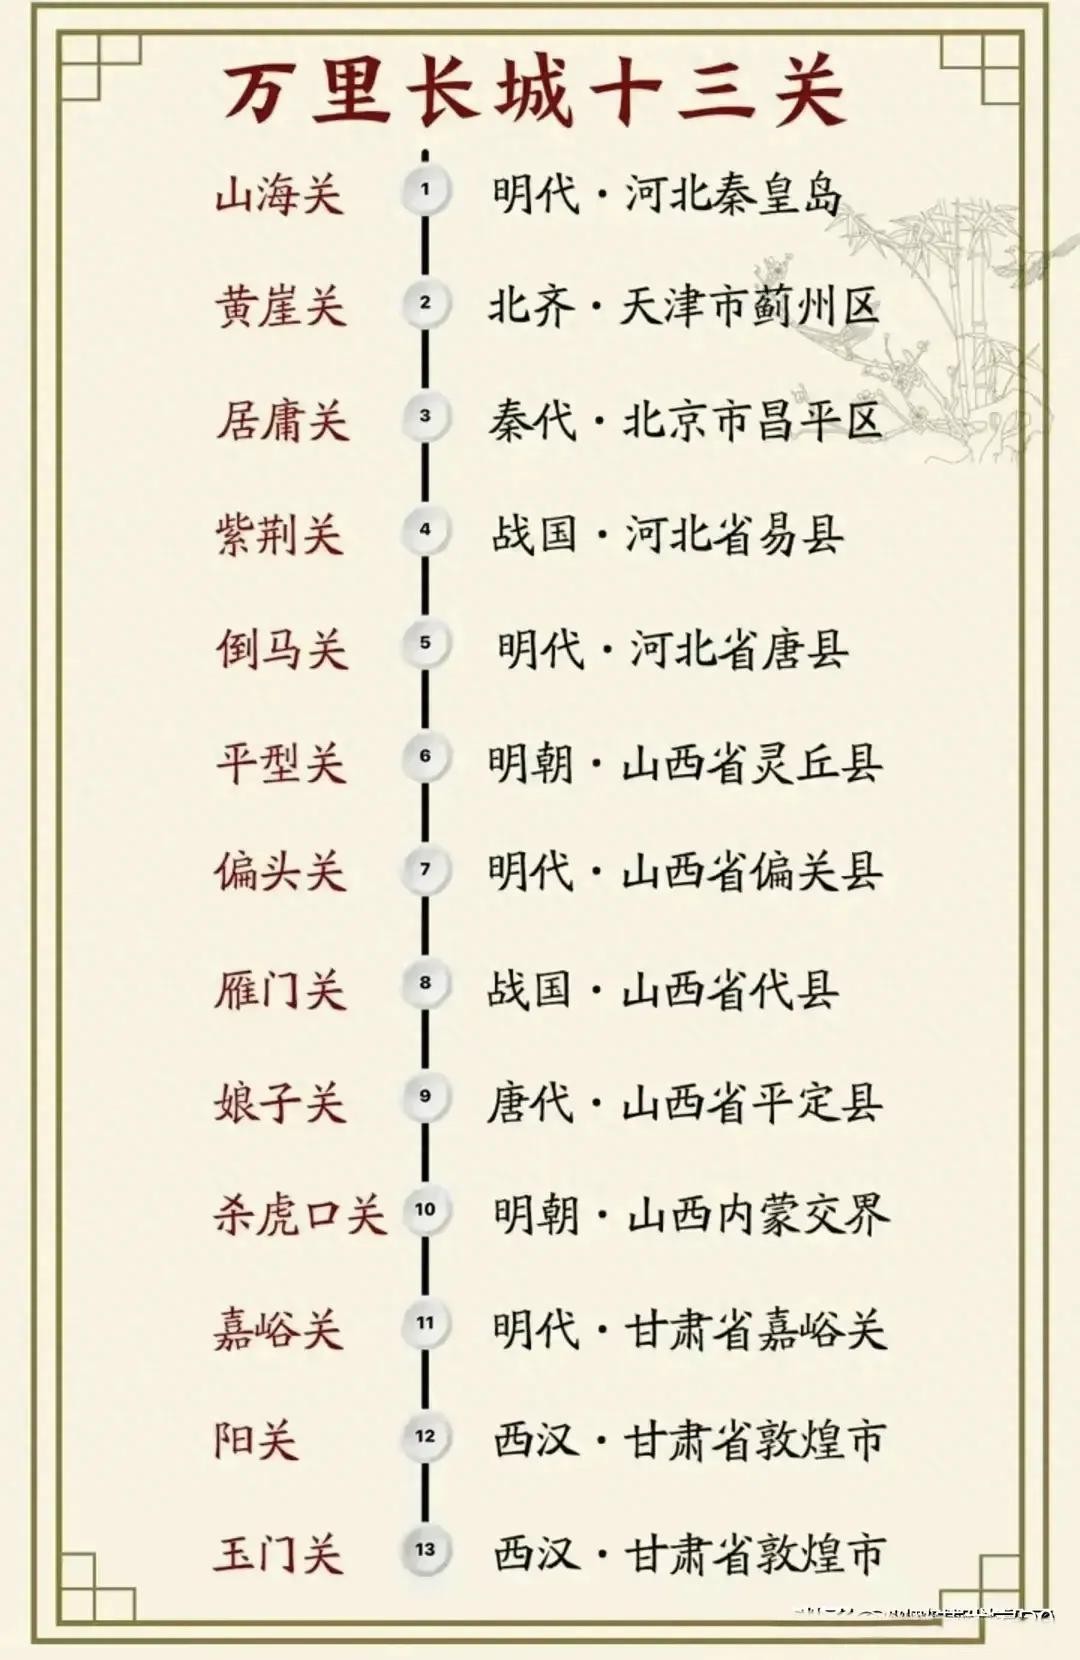 万里长城十三关
山海关 1 明代·河北秦皇岛
黄崖关 2 北齐·天津市蓟州区
居庸关 3 秦代·北京市昌平区
紫荆关 4 战国·河北省易县
倒马关 5 明代·河北省唐县
平型关 6 明朝·山西省灵丘县
偏头关 7 明代·山西省偏关县
雁门关 8 战国·山西省代县
娘子关 9 唐代·山西省平定县
杀虎口关 10 明朝·山西内蒙交界
嘉峪关 11 明代·甘肃省嘉峪关
阳关 12 西汉·甘肃省敦煌市
玉门关 13 西汉·甘肃省敦煌市